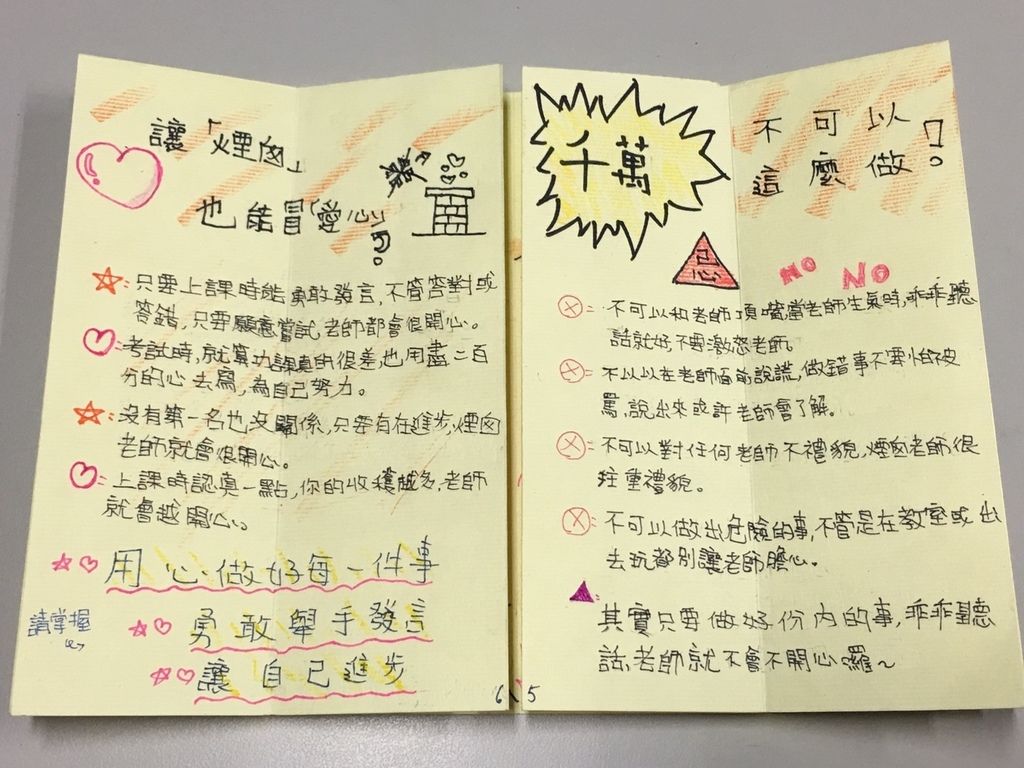 讓「煙囪」
也能冒「愛心」!?
☆：只要上課時能勇敢發言,不管答對或
答錯,只要願意嘗試,老師都會很開心。
♡：考試時,就算功課真的很差也用盡二百
分的心去寫,為自己努力。
☆：沒有第一名也沒關係,只要有在進步,煙囪
老師就會很開心。
♡：上課時認真一點,你的收穫越多,老師
就會越開心。
☆♡用心做好每一件事
請掌握
☆♡勇敢舉手發言
☆♡讓自己進步
6
千萬
不可以
這麼做!?
忌
NO NO
ⓧ：不可以和老師頂嘴當老師生氣時,乖乖聽
話就好,不要激怒老師。
ⓧ：不以以在老師面前說謊,做錯事不要怕被
罵,說出來或許老師會了解。
ⓧ：不可以對任何老師不禮貌,煙囪老師很
注重禮貌。
ⓧ：不可以做出危險的事,不管是在教室或出
去玩都別讓老師擔心。
▲：其實只要做好份內的事,乖乖聽
話,老師就不會不開心囉~
5